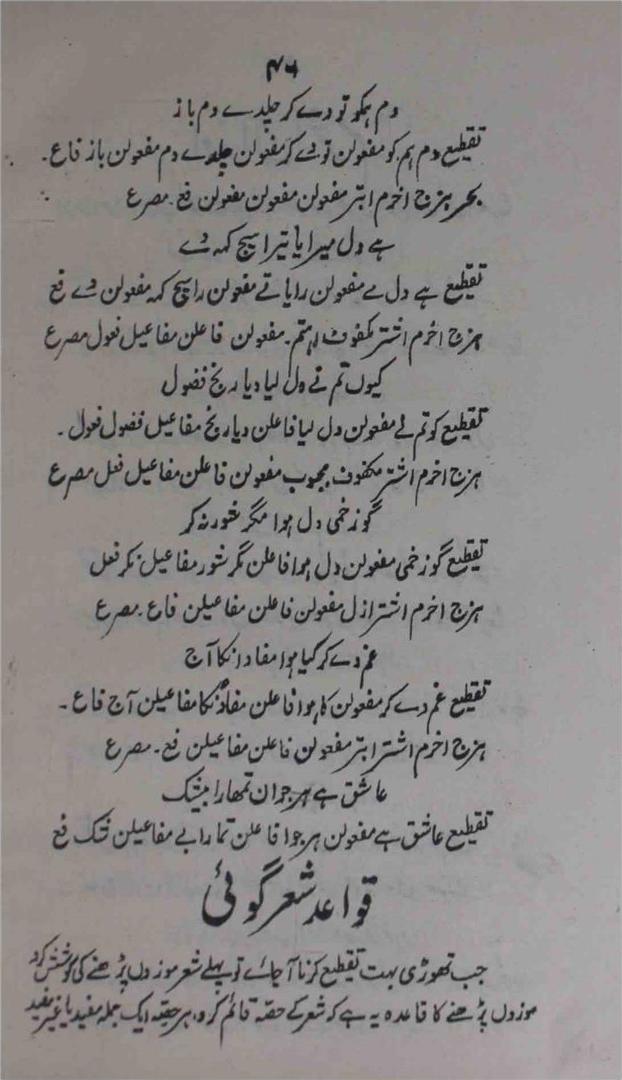 ۴۶
دم ہمکو تو دے کر چلدے دم باز
تقطیع دم ہم کو مفعولن تو دے کر مفعولن چلدے دم مفعولن باز فاع ۔
بحر ہزج اخرم ابتر مفعولن مفعولن مفعولن فع ۔ مصرع
ہے دل میرا یا تیرا سچ کہہ دے
تقطیع ہے دل مے مفعولن را یا تے مفعولن را سچ کہہ مفعولن دے فع
ہزج اخرم اشتر مکفوف اہتم ۔ مفعولن فاعلن مفاعیل فعول مصرع
کیوں تم نے دل لیا دیا رنج فضول
تقطیع کو تم نے مفعولن دل لیا فاعلن دیا رنج مفاعیل فضول فعول ۔
ہزج اخرم اشتر مکفوف مجبوب مفعولن فاعلن مفاعیل فعل مصرع
گو زخمی دل ہوا مگر شور نہ کر
تقطیع گو زخمی مفعولن دل ہوا فاعلن مگر شور مفاعیل نکر فعل
ہزج اخرم اشتر ازل مفعولن فاعلن مفاعیلن فاع ۔ مصرع
غم دے کر کیا ہوا مفاد انکا آج
تقطیع غم دے کر مفعولن کا ہوا فاعلن مفاد نکا مفاعیلن آج فاع ۔
ہزج اخرم اشتر ابتر مفعولن فاعلن مفاعیلن فع ۔ مصرع
عاشق ہے ہر جوان تمھارا بیشک
تقطیع عاشق ہے مفعولن ہر جوا فاعلن تمارا بے مفاعیلن شک فع
قواعد شعر گوئی
جب تھوڑی بہت تقطیع کرنا آجائے تو پہلے شعر موزوں پڑھنے کی کوشش کرو
موزوں پڑھنے کا قاعدہ یہ ہے کہ شعر کے حصہ قائم کرو، ہر حصہ ایک جملہ مفید یا غیر مفید